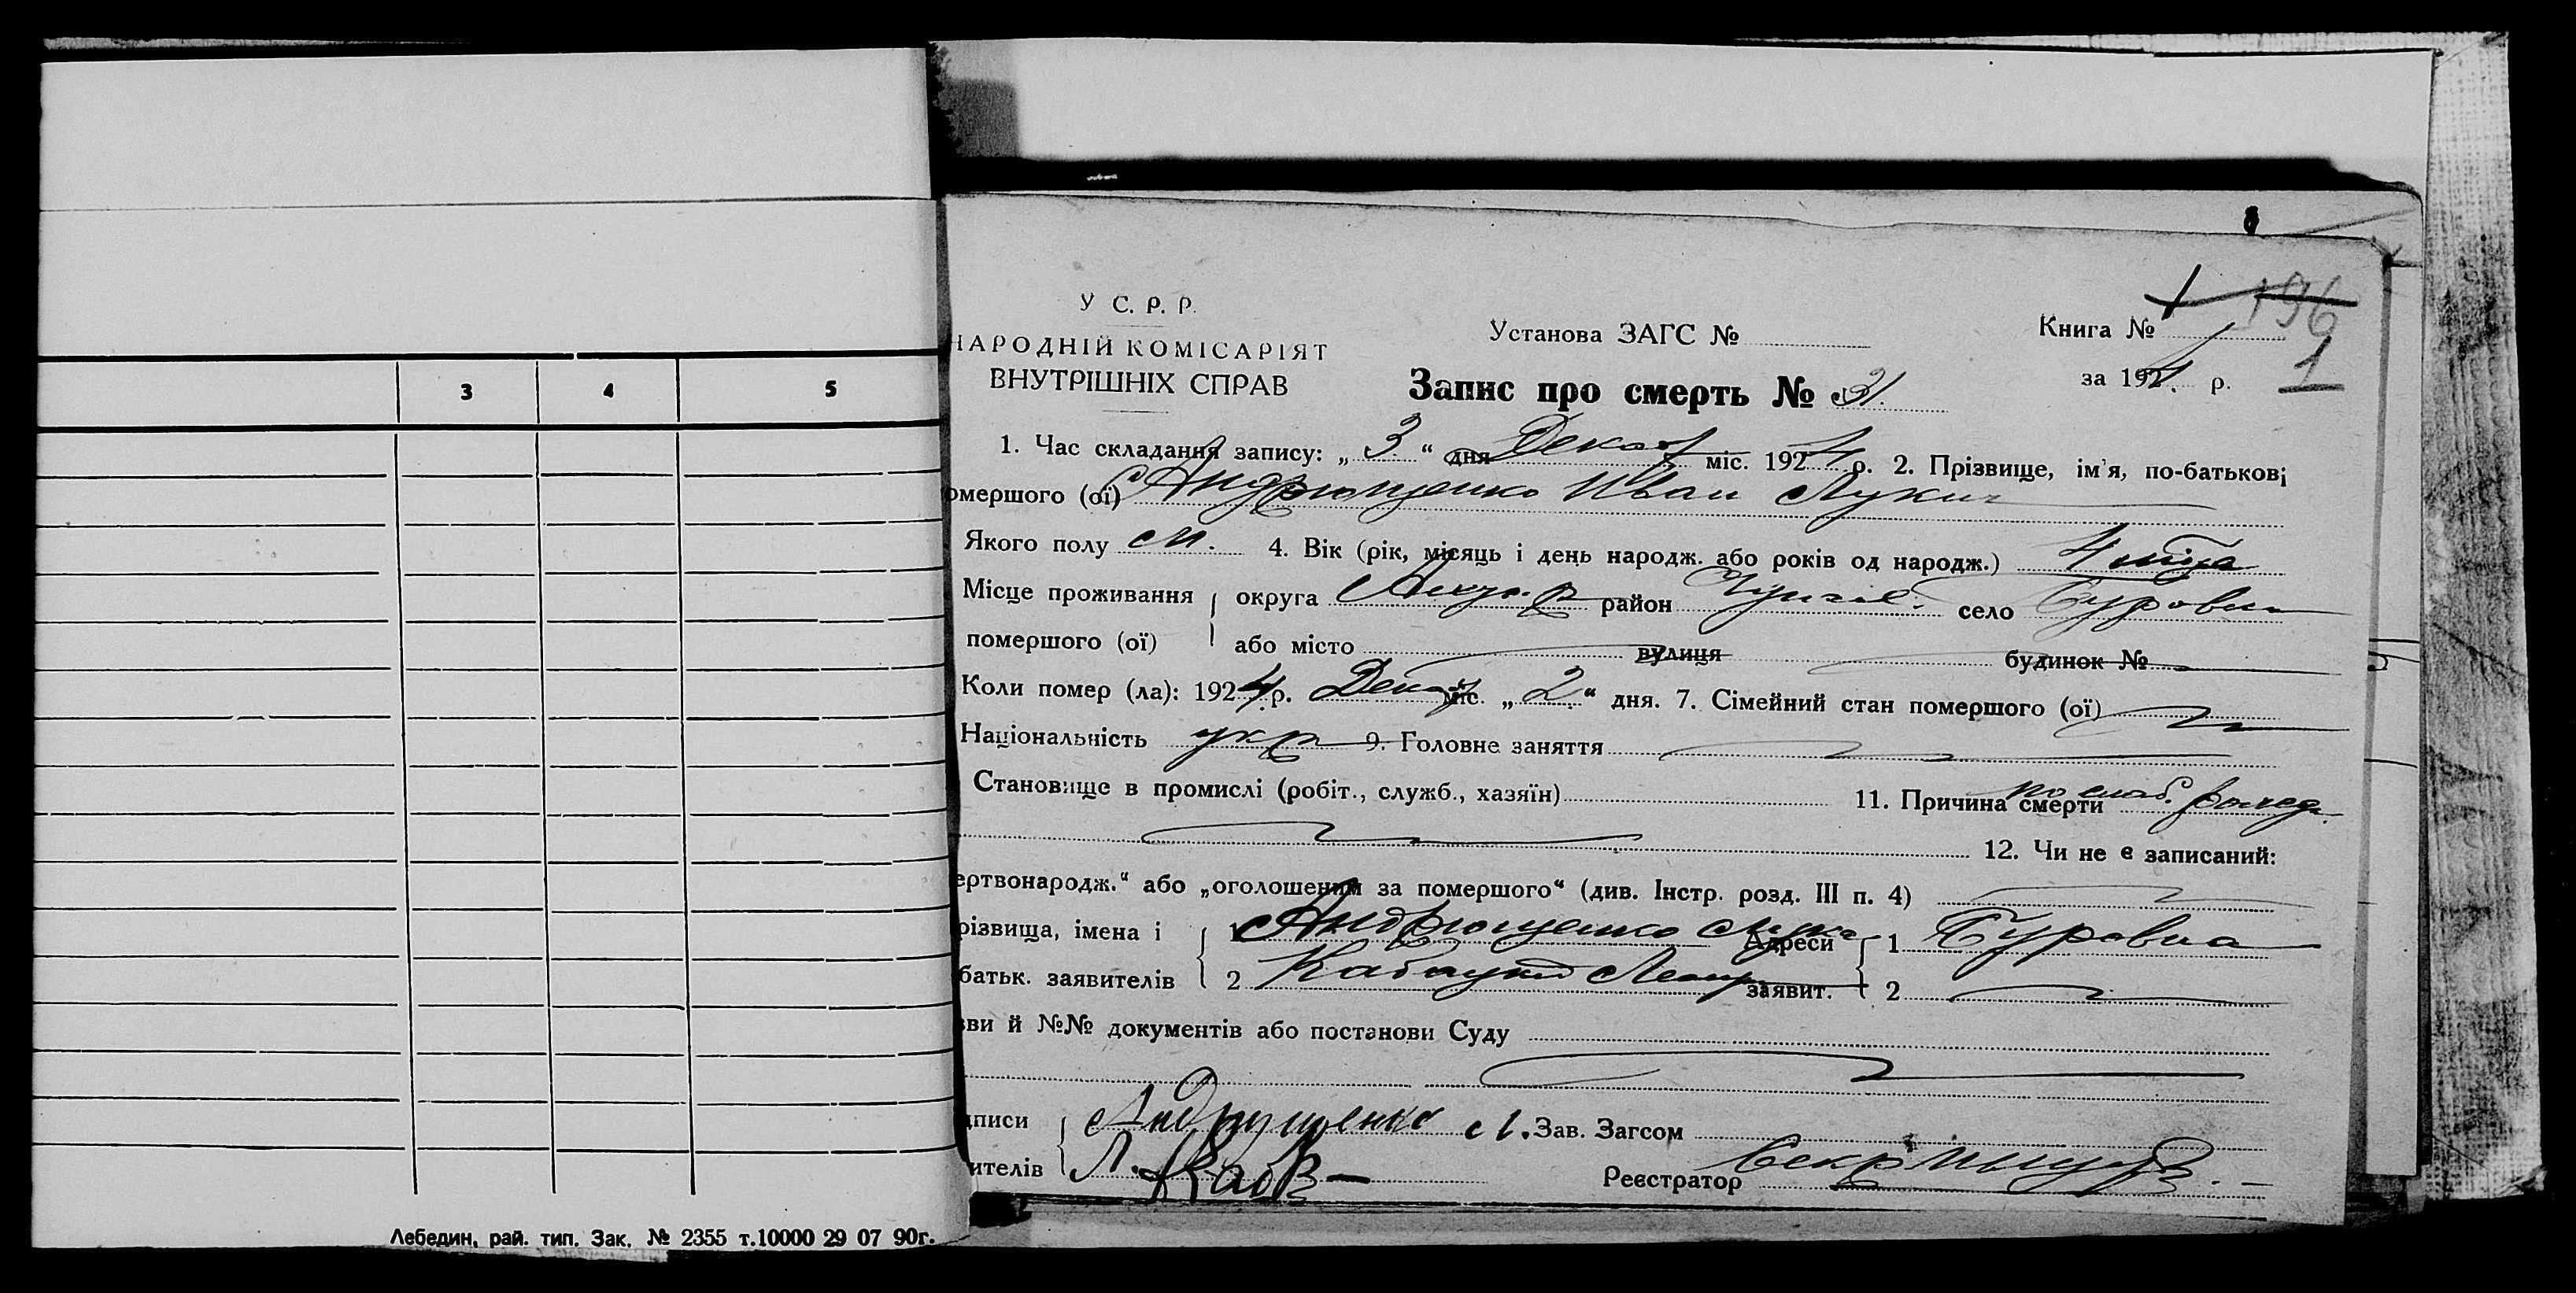 3 4 5
Лебедин, рай. тип. Зак. № 2355 т.10000 29 07 90г.
196
У С. Р. Р.
НАРОДНІЙ КОМІСАРІЯТ
ВНУТРІШНІХ СПРАВ
Установа ЗАГС №
Книга №
за 1924 р. 1
Запис про смерть № 31.
1. Час складання запису: „ 3 “ дня Декаб міс. 1924 р. 2. Прізвище, ім'я, по-батькові
омершого (ої) Андрющенко Иван Лукич
Якого полу м. 4. Вік (рік, місяць і день народж. або років од народж.) 4
Місце проживання округа район село Буровка
помершого (ої) або місто вулиця будинок №
Коли помер (ла): 1924 р. Декаб міс. „ 2 “ дня. 7. Сімейний стан помершого (ої)
Національність укр 9. Головне заняття
Становище в промислі (робіт., служб., хазяїн) 11. Причина смерти по слаб.
12. Чи не є записаний:
ертвонародж.“ або „оголошеним за помершого“ (див. Інстр. розд. III п. 4)
різвища, імена і 1 Андрющенко Лука Адреси 1 Буровка
батьк. заявителів 2 заявит. 2
зви й №№ документів або постанови Суду
дписи Андрущенко Л. Зав. Загсом
ителів Л. Реєстратор